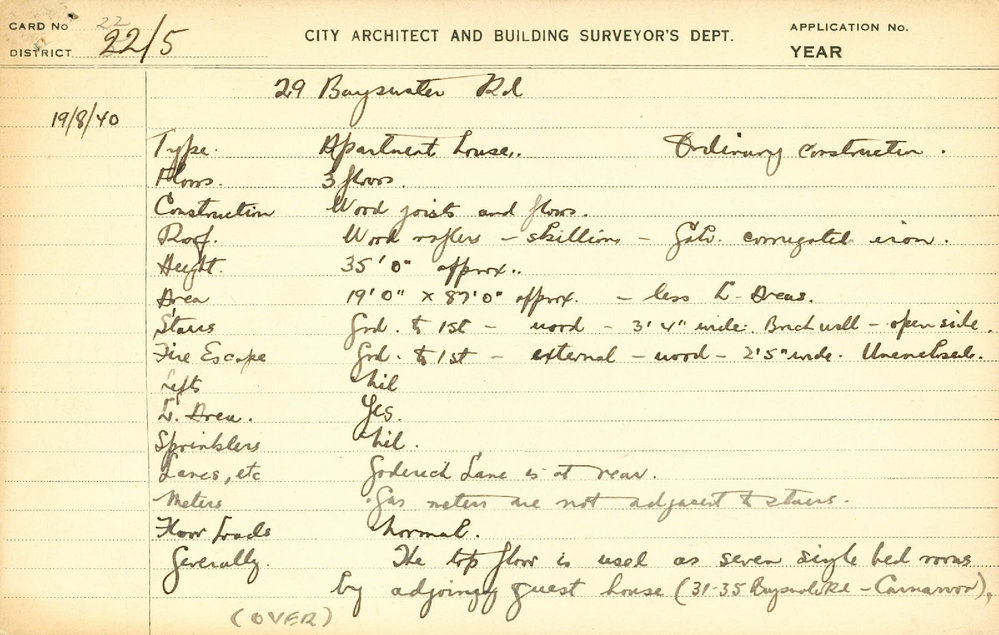 CARD No 22 22/5 CITY ARCHITECT AND BUILDING SURVEYOR'S DEPT. APPLICATION No.
DISTRICT YEAR
29 Bayswater Rd
19/8/40
Type. Apartment house. Ordinary construction.
Floors. 3 floors.
Construction Wood joists and floors.
Roof. Wood rafters – skillions – Galv. corrugated iron.
Height. 35'0" approx.
Area 19'0" x 87'0" approx. – less L. Areas.
Stairs Grd. to 1st – wood – 3'4" wide. Brick wall – open side.
Fire Escape Grd. to 1st – external – wood – 2'5" wide. Unenclosed.
Lifts Nil
L. Area. Yes.
Sprinklers Nil.
Lanes, etc Goderich Lane is at rear.
Meters Gas meters are not adjacent to stairs.
Floor Loads Normal.
Generally. The top floor is used as seven single bed rooms
by adjoing guest house (31-35 Bayswater Rd – Carnarvon),
(OVER)